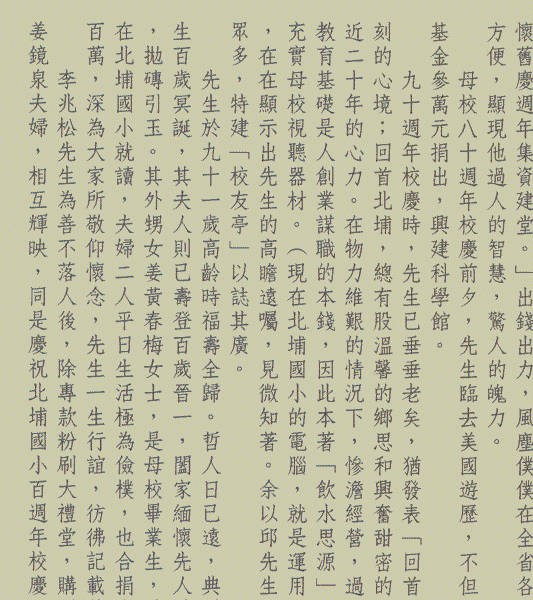 懷舊慶週年集資建堂。﹂出錢出力，風塵僕僕在全省各
方便，顯現他過人的智慧，驚人的魄力。
母校八十週年校慶前夕，先生臨去美國遊歷，不但
基金參萬元捐出，興建科學館。
九十週年校慶時，先生已垂垂老矣，猶發表﹁回首
刻的心境；回首北埔，總有股溫馨的鄉思和興奮甜密的
近二十年的心力。在物力維艱的情況下，慘澹經營，過
教育基礎是人創業謀職的本錢，因此本著﹁飲水思源﹂
充實母校視聽器材。︵現在北埔國小的電腦，就是運用
，在在顯示出先生的高瞻遠囑，見微知著。余以邱先生
眾多，特建﹁校友亭﹂以誌其廣。
先生於九十一歲高齡時福壽全歸。哲人日已遠，典
生百歲冥誕，其夫人則已壽登百歲晉一，闔家緬懷先人
，拋磚引玉。其外甥女姜黃春梅女士，是母校畢業生，
在北埔國小就讀，夫婦二人平日生活極為儉樸，也合捐
百萬，深為大家所敬仰懷念，先生一生行誼，彷彿記載
李兆松先生為善不落人後，除專款粉刷大禮堂，購
姜鏡泉夫婦，相互輝映，同是慶祝北埔國小百週年校慶